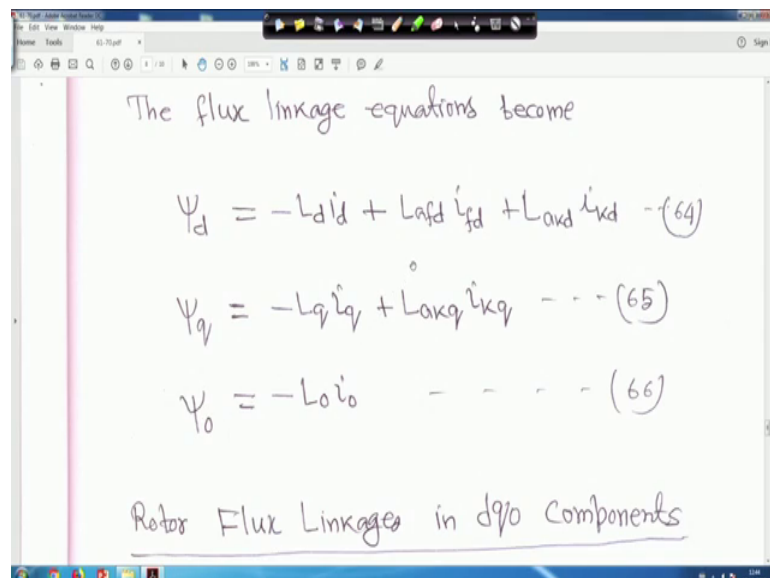 61-70.pdf - Adobe Acrobat Reader DC
File Edit View Window Help
Home Tools 61-70.pdf × Sign
The flux linkage equations become
Ψd = -Ld id + Lafd ifd + Lakd ikd - - (64)
Ψq = -Lq iq + Lakq ikq - - - (65)
Ψ0 = -L0 i0 - - - - (66)
Rotor Flux Linkages in dq0 components